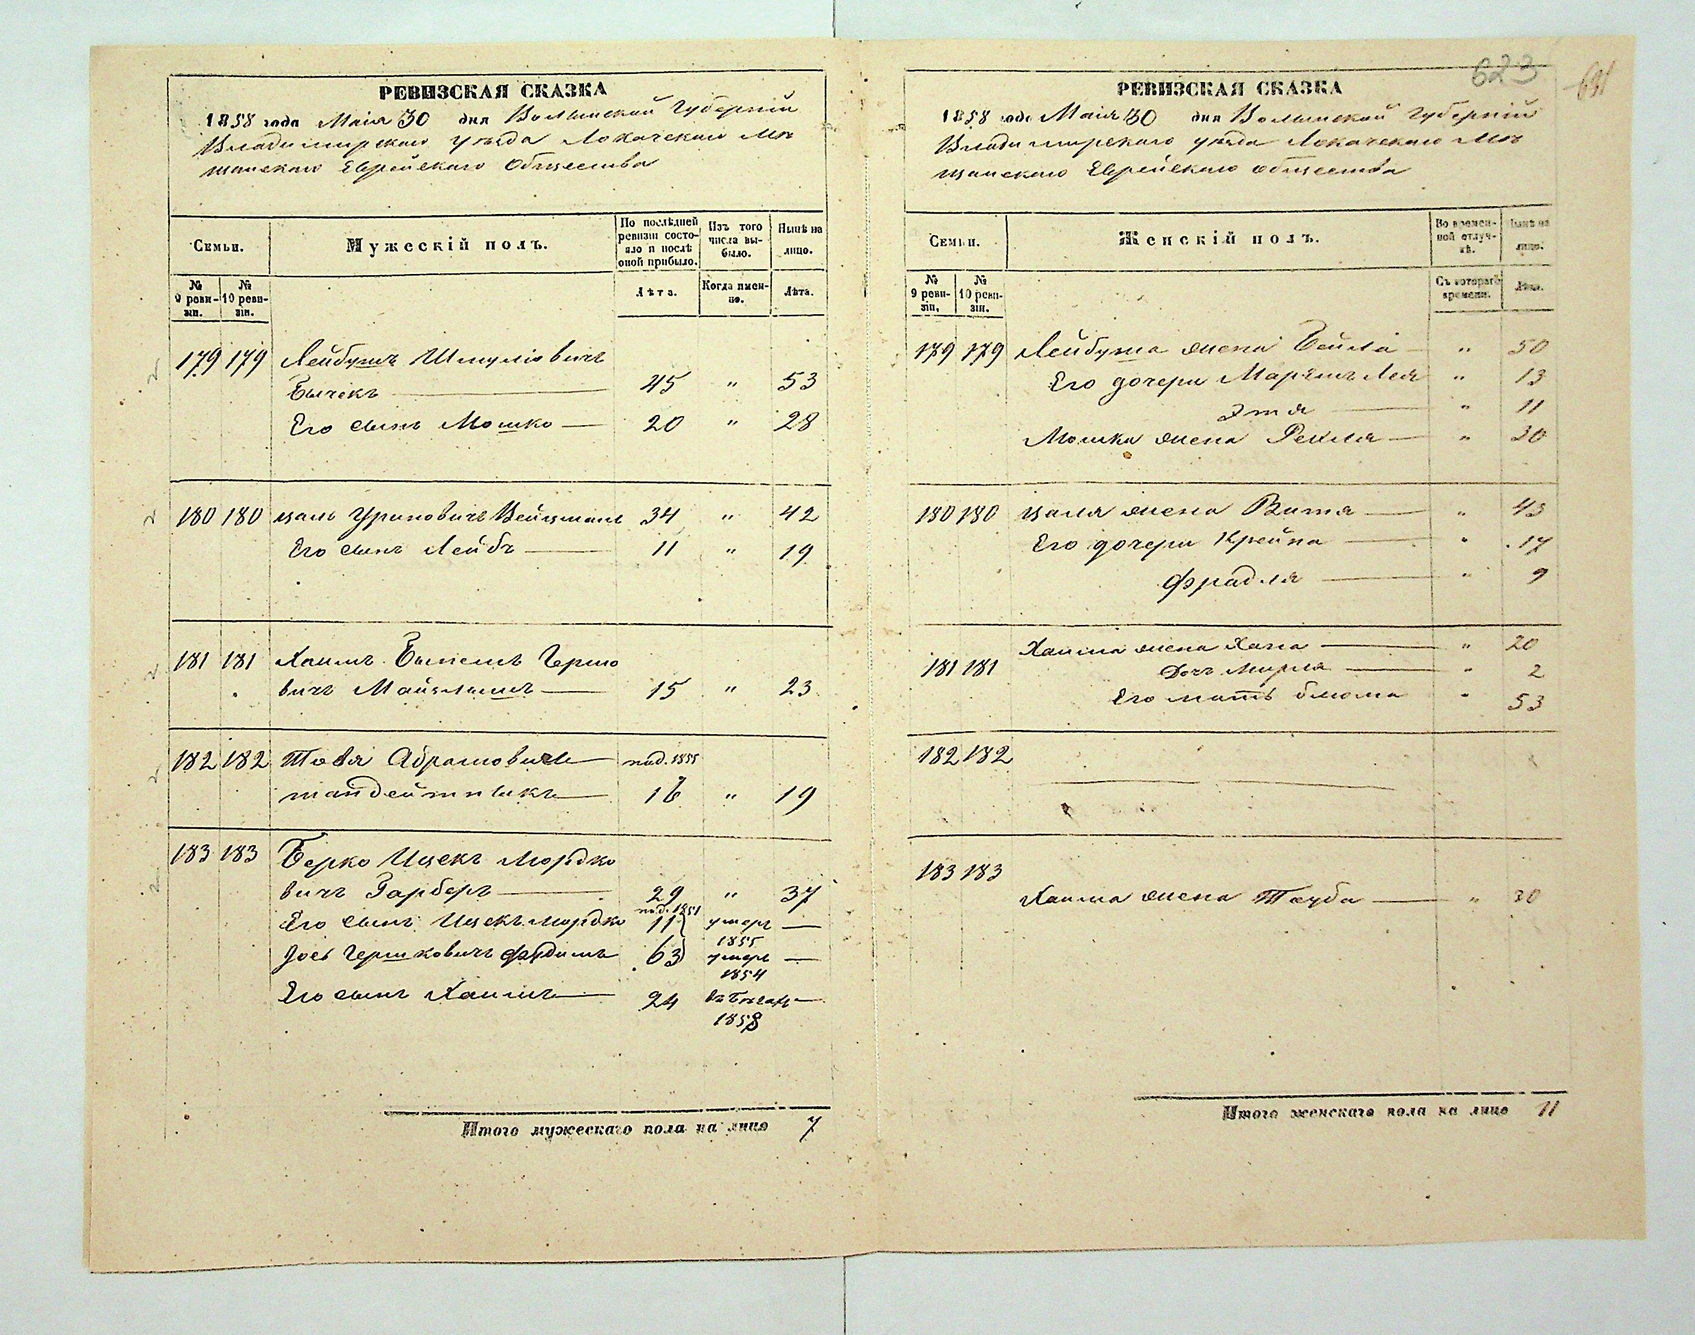 623
РЕВИЗСКАЯ СКАЗКА
1858 года Маія 30 дня Волынской Губерніи
Владимирскаго уѣзда Локачскаго Мѣ
щанскаго Еврейскаго Общества
Семьи.
Мужескій полъ.
По послѣдней ревизіи состояло и послѣ оной прибыло.
Изъ того числа выбыло.
Нынѣ на лицо.
№ 9 ревизіи.
№ 10 ревизіи.
Лѣта.
Когда именно.
Лѣта.
179 179 Лейбушъ Шмуліовичъ
Бычекъ 45 " 53
Его сынъ Мошко 20 " 28
180 180 Цаль Уриновичъ Вейцманъ 34 " 42
Его сынъ Лейбъ 11 " 19
181 181 Хаимъ Гершо
вичъ 15 " 23
182 182 Товья Абрамовичъ 1855
16 " 19
183 183 Берко Ицекъ Мордко
вичъ Гарберъ 29 " 37
Его сынъ Ицекъ Мордко 1851 11 умеръ 1855
Іось Гершковичъ 63 умеръ 1854
Его сынъ Хаимъ 24 1858
Итого мужескаго пола на лицо 7
РЕВИЗСКАЯ СКАЗКА
1858 года Маія 30 дня Волынской Губерніи
Владимирскаго уѣзда Локачскаго Мѣ
щанскаго Еврейскаго общества
Семьи.
Женскій полъ.
Во временной отлучкѣ.
Нынѣ на лицо.
№ 9 ревизіи.
№ 10 ревизіи.
Съ котораго времени.
Лѣта.
179 179 Лейбуша жена Бейла " 50
Его дочери Марьямъ Лея " 13
Этя " 11
Мошка жена Рехля " 30
180 180 Цаля жена Витя " 43
Его дочери Крейна " 17
Фрадля " 9
181 181 Хаима жена Хана " 20
Дочь Мирля " 2
Его мать Блюма " 53
182 182
183 183
Хаима жена Тауба " 30
Итого женскаго пола на лицо 11